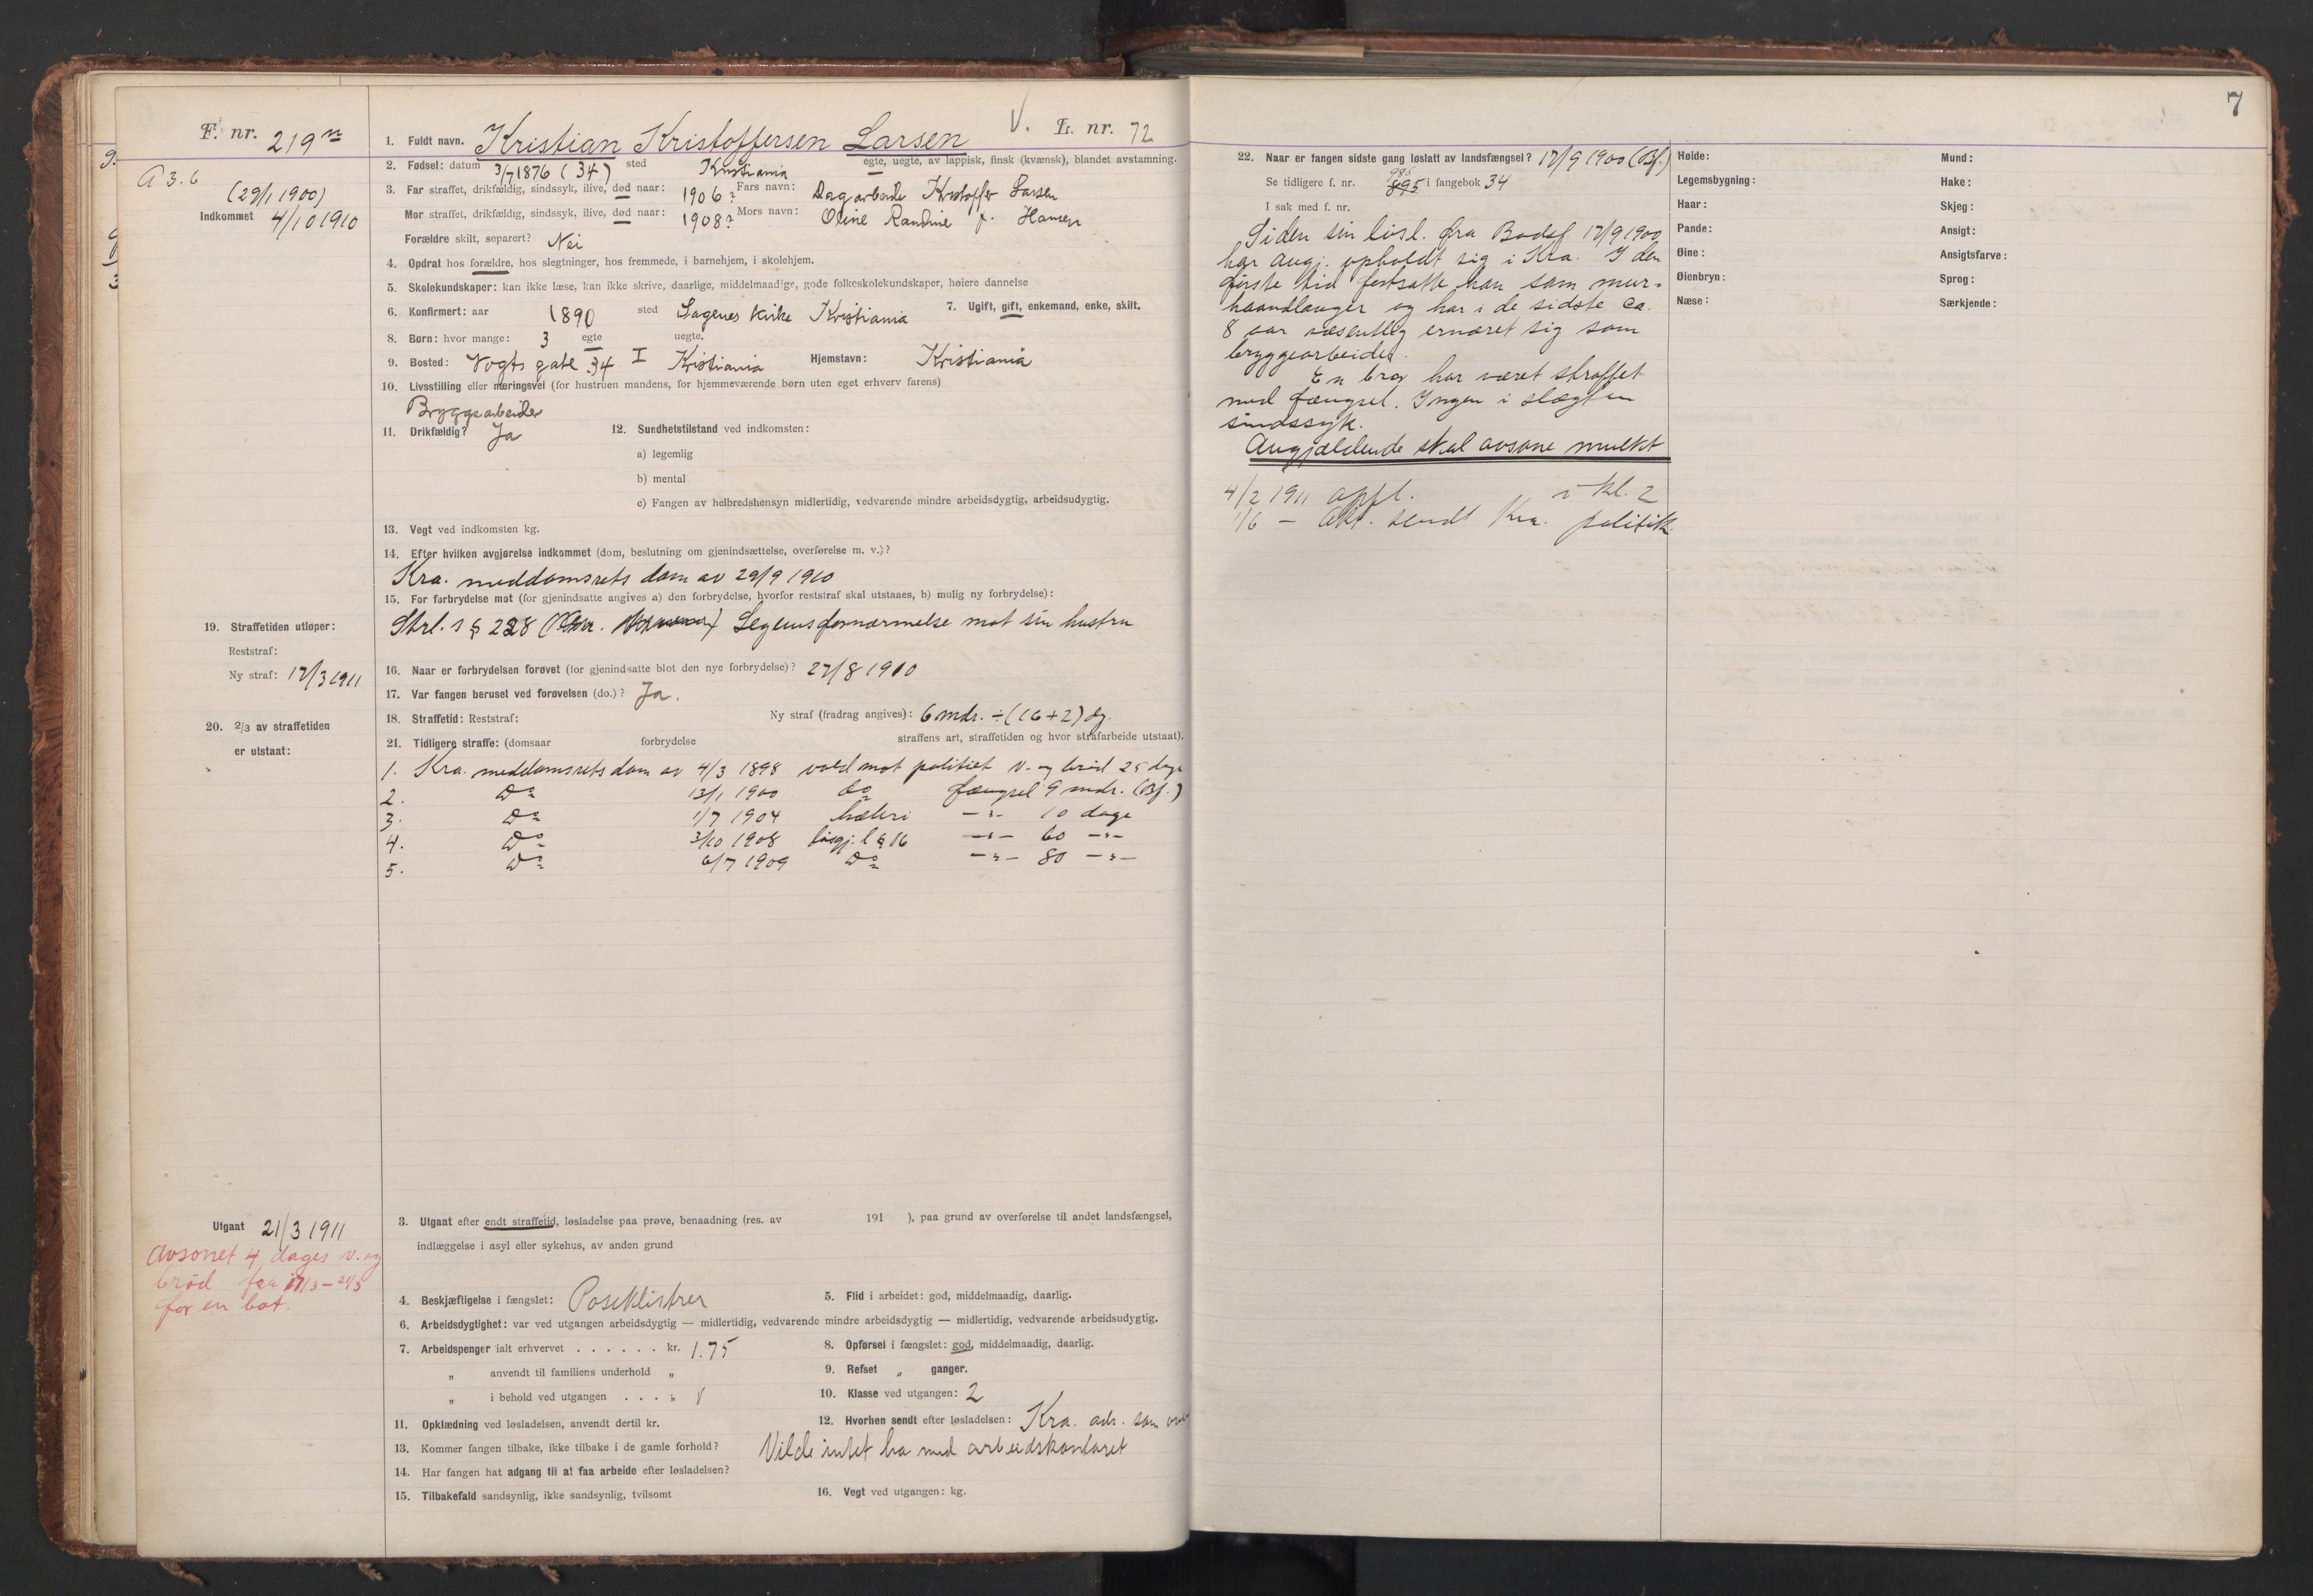 F. nr. 219
A 3. 6
(29/1 1900)
Indkommet 4/10 1910
V. L. nr. 72
1. Fuldt navn. Kristian Kristoffersen Larsen
2. Fødsel: datum 3/7 1876 (34) sted Kristiania egte, uegte, av lappisk, finsk (kvænsk), blandet avstamning.
3. Far straffet, drikfældig, sindssyk, ilive, død naar: 1906? Fars navn: Dagarbeider Kristoffer Larsen
Mor straffet, drikfældig, sindssyk, ilive, død naar: 1908? Mors navn: Oline Randine f. Hansen
Forældre skilt, separert? Nei
4. Opdrat hos forældre, hos slegtninger, hos fremmede, i barnehjem, i skolehjem.
5. Skolekundskaper: kan ikke læse, kan ikke skrive, daarlige, middelmaadige, gode folkeskolekundskaper, høiere dannelse
6. Konfirmert: aar 1890 sted Sagenes kirke Kristiania 7. Ugift, gift, enkemand, enke, skilt.
8. Børn: hvor mange: 3 egte uegte.
9. Bosted: Vogts gate 34 I Kristiania Hjemstavn: Kristiania
10. Livsstilling eller næringsvei (for hustruen mandens, for hjemmeværende børn uten eget erhverv farens)
Bryggearbeider
11. Drikfældig? Ja 12. Sundhetstilstand ved indkomsten:
a) legemlig
b) mental
c) Fangen av helbredshensyn midlertidig, vedvarende mindre arbeidsdygtig, arbeidsudygtig.
13. Vegt ved indkomsten kg.
14. Efter hvilken avgjørelse indkommet (dom, beslutning om gjenindsættelse, overførelse m. v.)?
Kra. meddomsrets dom av 29/9 1910
15. For forbrydelse mot (for gjenindsatte angives a) den forbrydelse, hvorfor reststraf skal utstaaes, b) mulig ny forbrydelse):
Strl. s § 228 Legemsfornærmelse mot sin hustru
19. Straffetiden utløper:
Reststraf:
Ny straf: 17/3 1911
16. Naar er forbrydelsen forøvet (for gjenindsatte blot den nye forbrydelse)? 27/8 1910
17. Var fangen beruset ved forøvelsen (do.)? Ja.
18. Straffetid: Reststraf: Ny straf (fradrag angives): 6 mdr. ÷ (16+2) dg.
20. 2/3 av straffetiden
er utstaat:
21. Tidligere straffe: (domsaar forbrydelse straffens art, straffetiden og hvor strafarbeide utstaat).
1. Kra. meddomsrets dom av 4/3 1898 vold mot politiet v. og brød 25 dage
2. Do 13/1 1900 do fængsel 9 mdr. (Bf.)
3. Do 1/7 1904 hæleri -"- 10 dage
4. Do 3/10 1908 løsgj. l § 16 -"- 60 -"-
5. Do 6/7 1909 Do -"- 80 -"-
Utgaat 21/3 1911
Avsonet 4 dages v. og
brød fra 17/3 - 21/3
for en bot.
3. Utgaat efter endt straffetid, løsladelse paa prøve, benaadning (res. av 191 ), paa grund av overførelse til andet landsfængsel,
indlæggelse i asyl eller sykehus, av anden grund
4. Beskjæftigelse i fængslet: Poseklistrer 5. Flid i arbeidet: god, middelmaadig, daarlig.
6. Arbeidsdygtighet: var ved utgangen arbeidsdygtig — midlertidig, vedvarende mindre arbeidsdygtig — midlertidig, vedvarende arbeidsudygtig.
7. Arbeidspenger ialt erhvervet . . . . . . kr. 1.75 8. Opførsel i fængslet: god, middelmaadig, daarlig.
„ anvendt til familiens underhold „ 9. Refset „ ganger.
„ i behold ved utgangen . . . „ V 10. Klasse ved utgangen: 2
11. Opklædning ved løsladelsen, anvendt dertil kr. 12. Hvorhen sendt efter løsladelsen: Kra. adr. som
13. Kommer fangen tilbake, ikke tilbake i de gamle forhold? Vilde intet ha med arbeidskontoret
14. Har fangen hat adgang til at faa arbeide efter løsladelsen?
15. Tilbakefald sandsynlig, ikke sandsynlig, tvilsomt 16. Vegt ved utgangen: kg.
7
22. Naar er fangen sidste gang løslatt av landsfængsel? 17/9 1900 (Bf.)
Se tidligere f. nr. 895 985 i fangebok 34
I sak med f. nr.
Siden sin løsl. fra Bodsf. 17/9 1900
har angj. opholdt sig i Kra. I den
første tid fortsatte han som mur-
haandlanger og har i de sidste ca.
8 aar væsentlig ernæret sig som
bryggearbeider.
En bror har været straffet
med fængsel. Ingen i slægten
sindssyk.
Angjældende skal avsone mulkt
4/2 1911 opfl. i kl. 2
/16 — Akt. sendt Kra. politik.
Høide:
Legemsbygning:
Haar:
Pande:
Øine:
Øienbryn:
Næse:
Mund:
Hake:
Skjeg:
Ansigt:
Ansigtsfarve:
Sprog:
Særkjende: